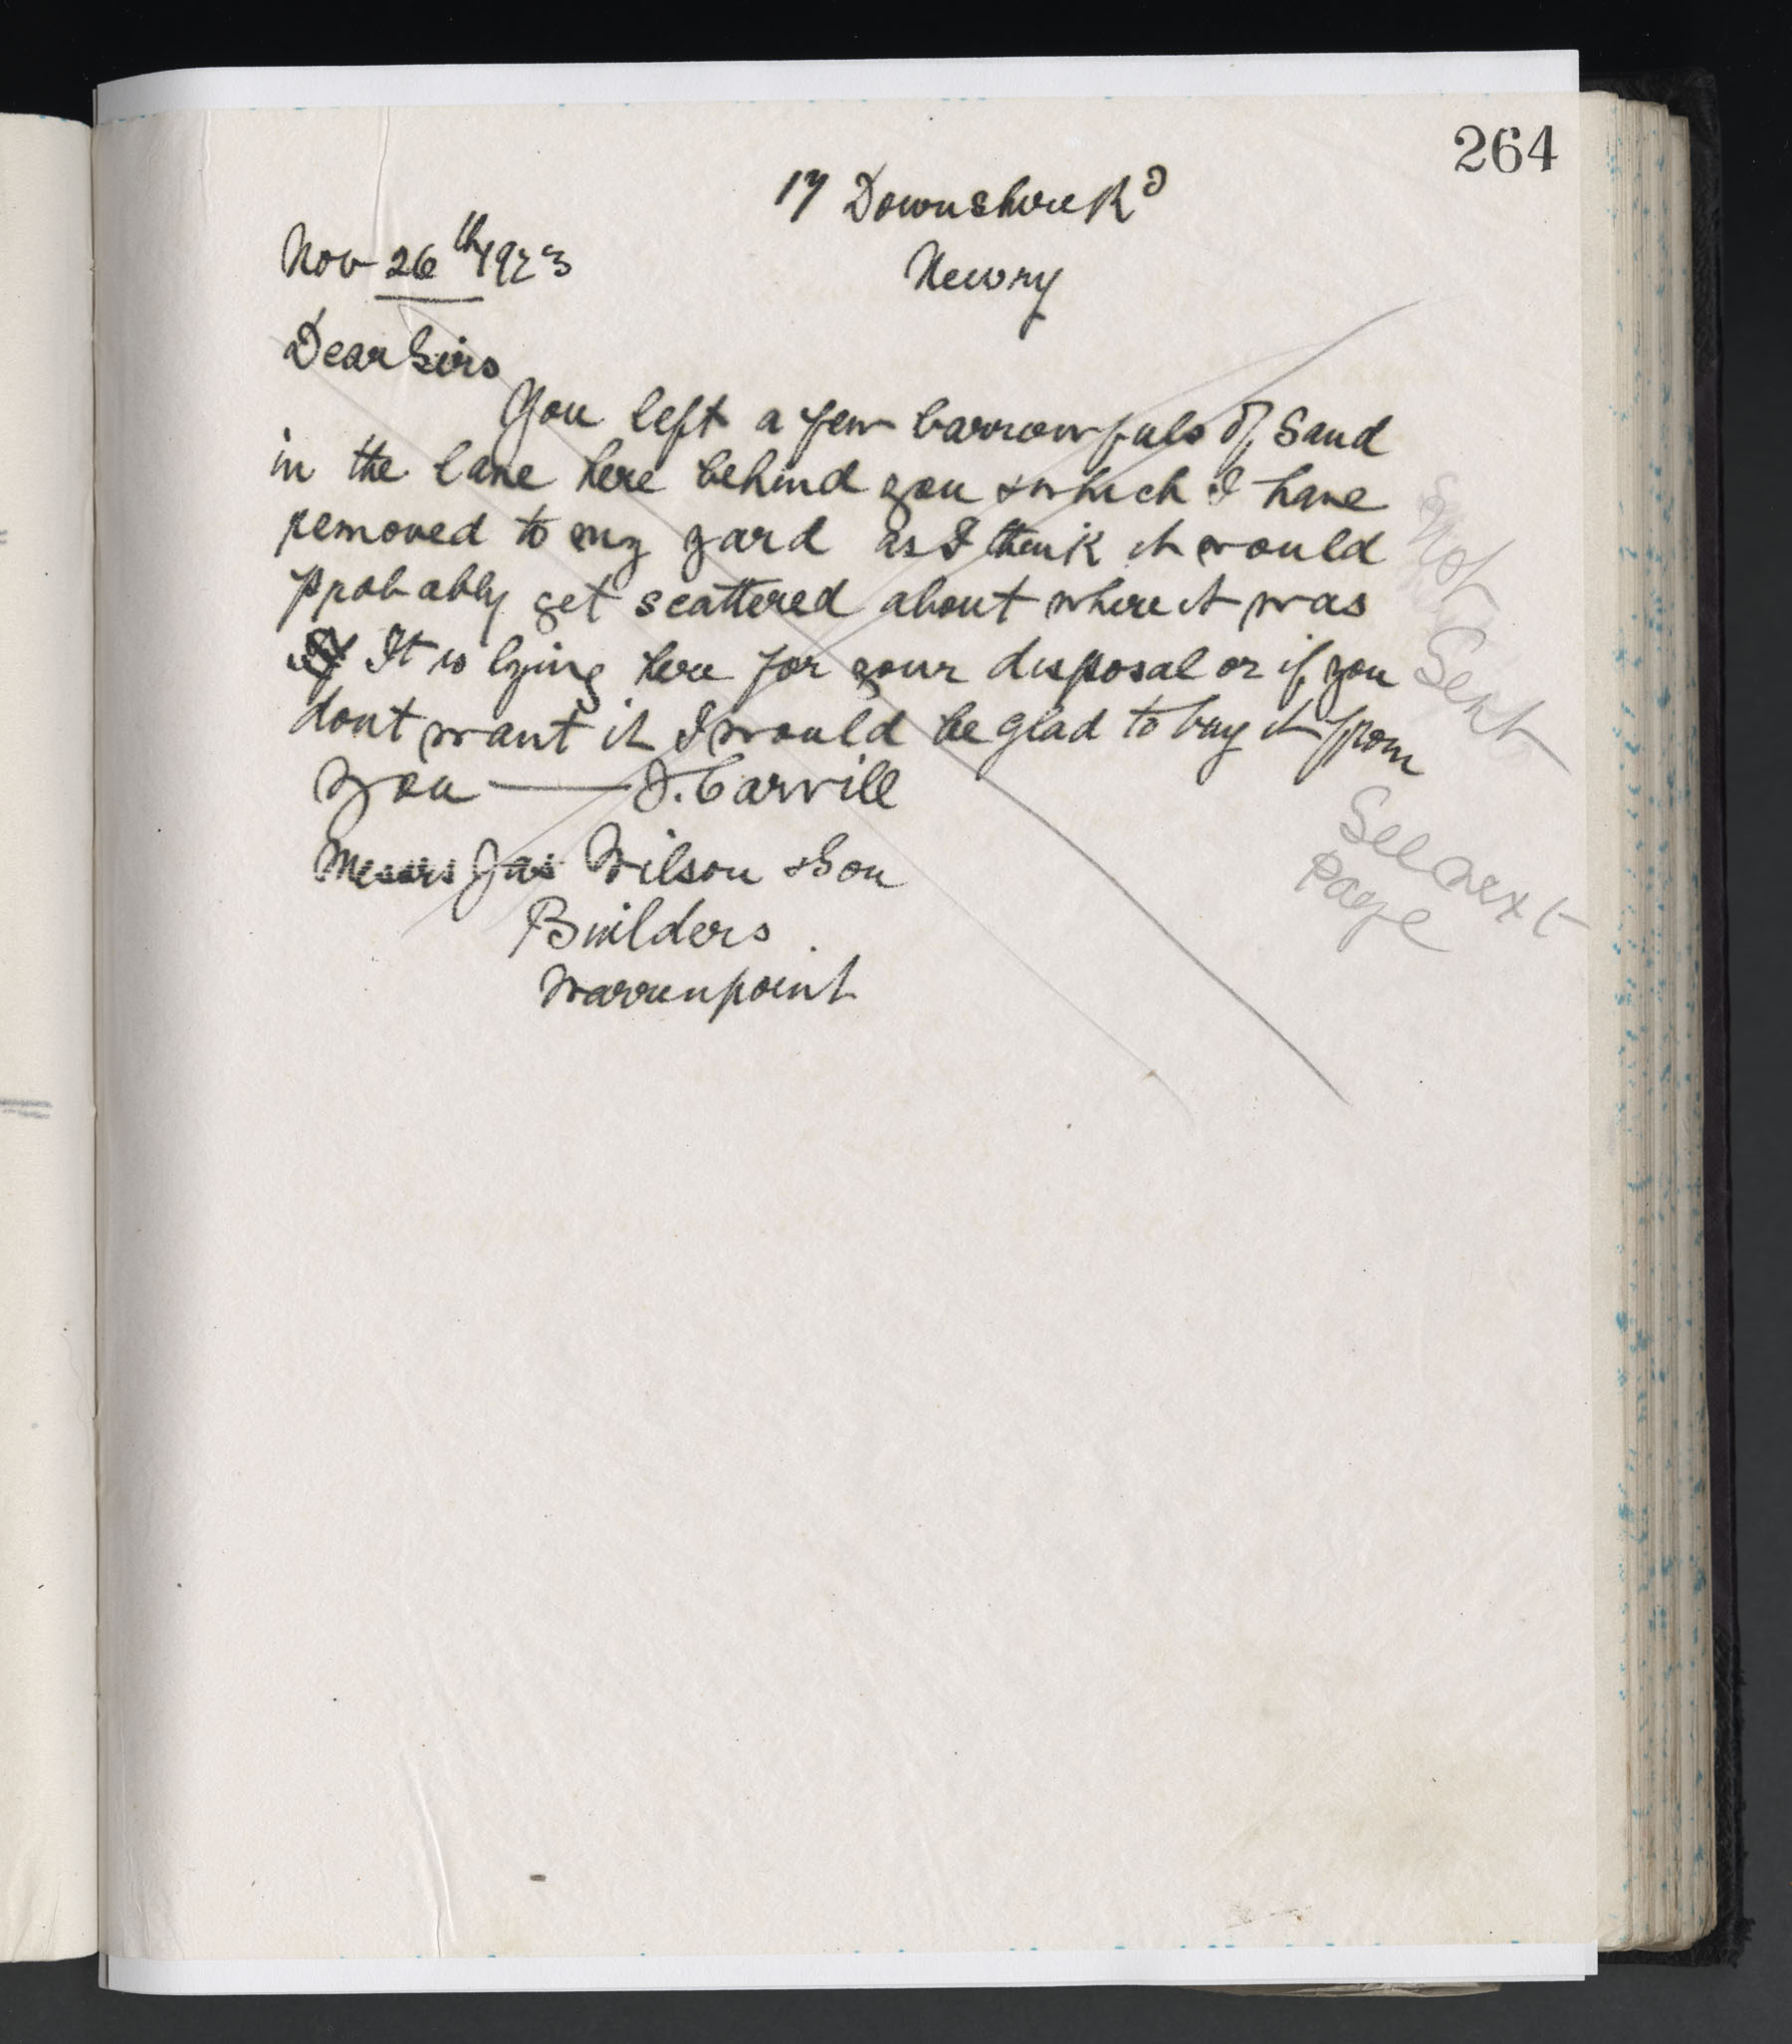 264
17 Downshire Rd
Nov 26th 1923
Newry
Dear Sirs
You left a few barrowfuls of sand
in the lane here behind you & which I have
removed to my yard as I think it would
probably get scattered about where it was
It is lying here for your disposal or if you
dont want it I would be glad to buy it from
you — J. Carvill
Messrs Jas Wilson & Son
Builders
Warrenpoint
Not
Sent
See next
Page